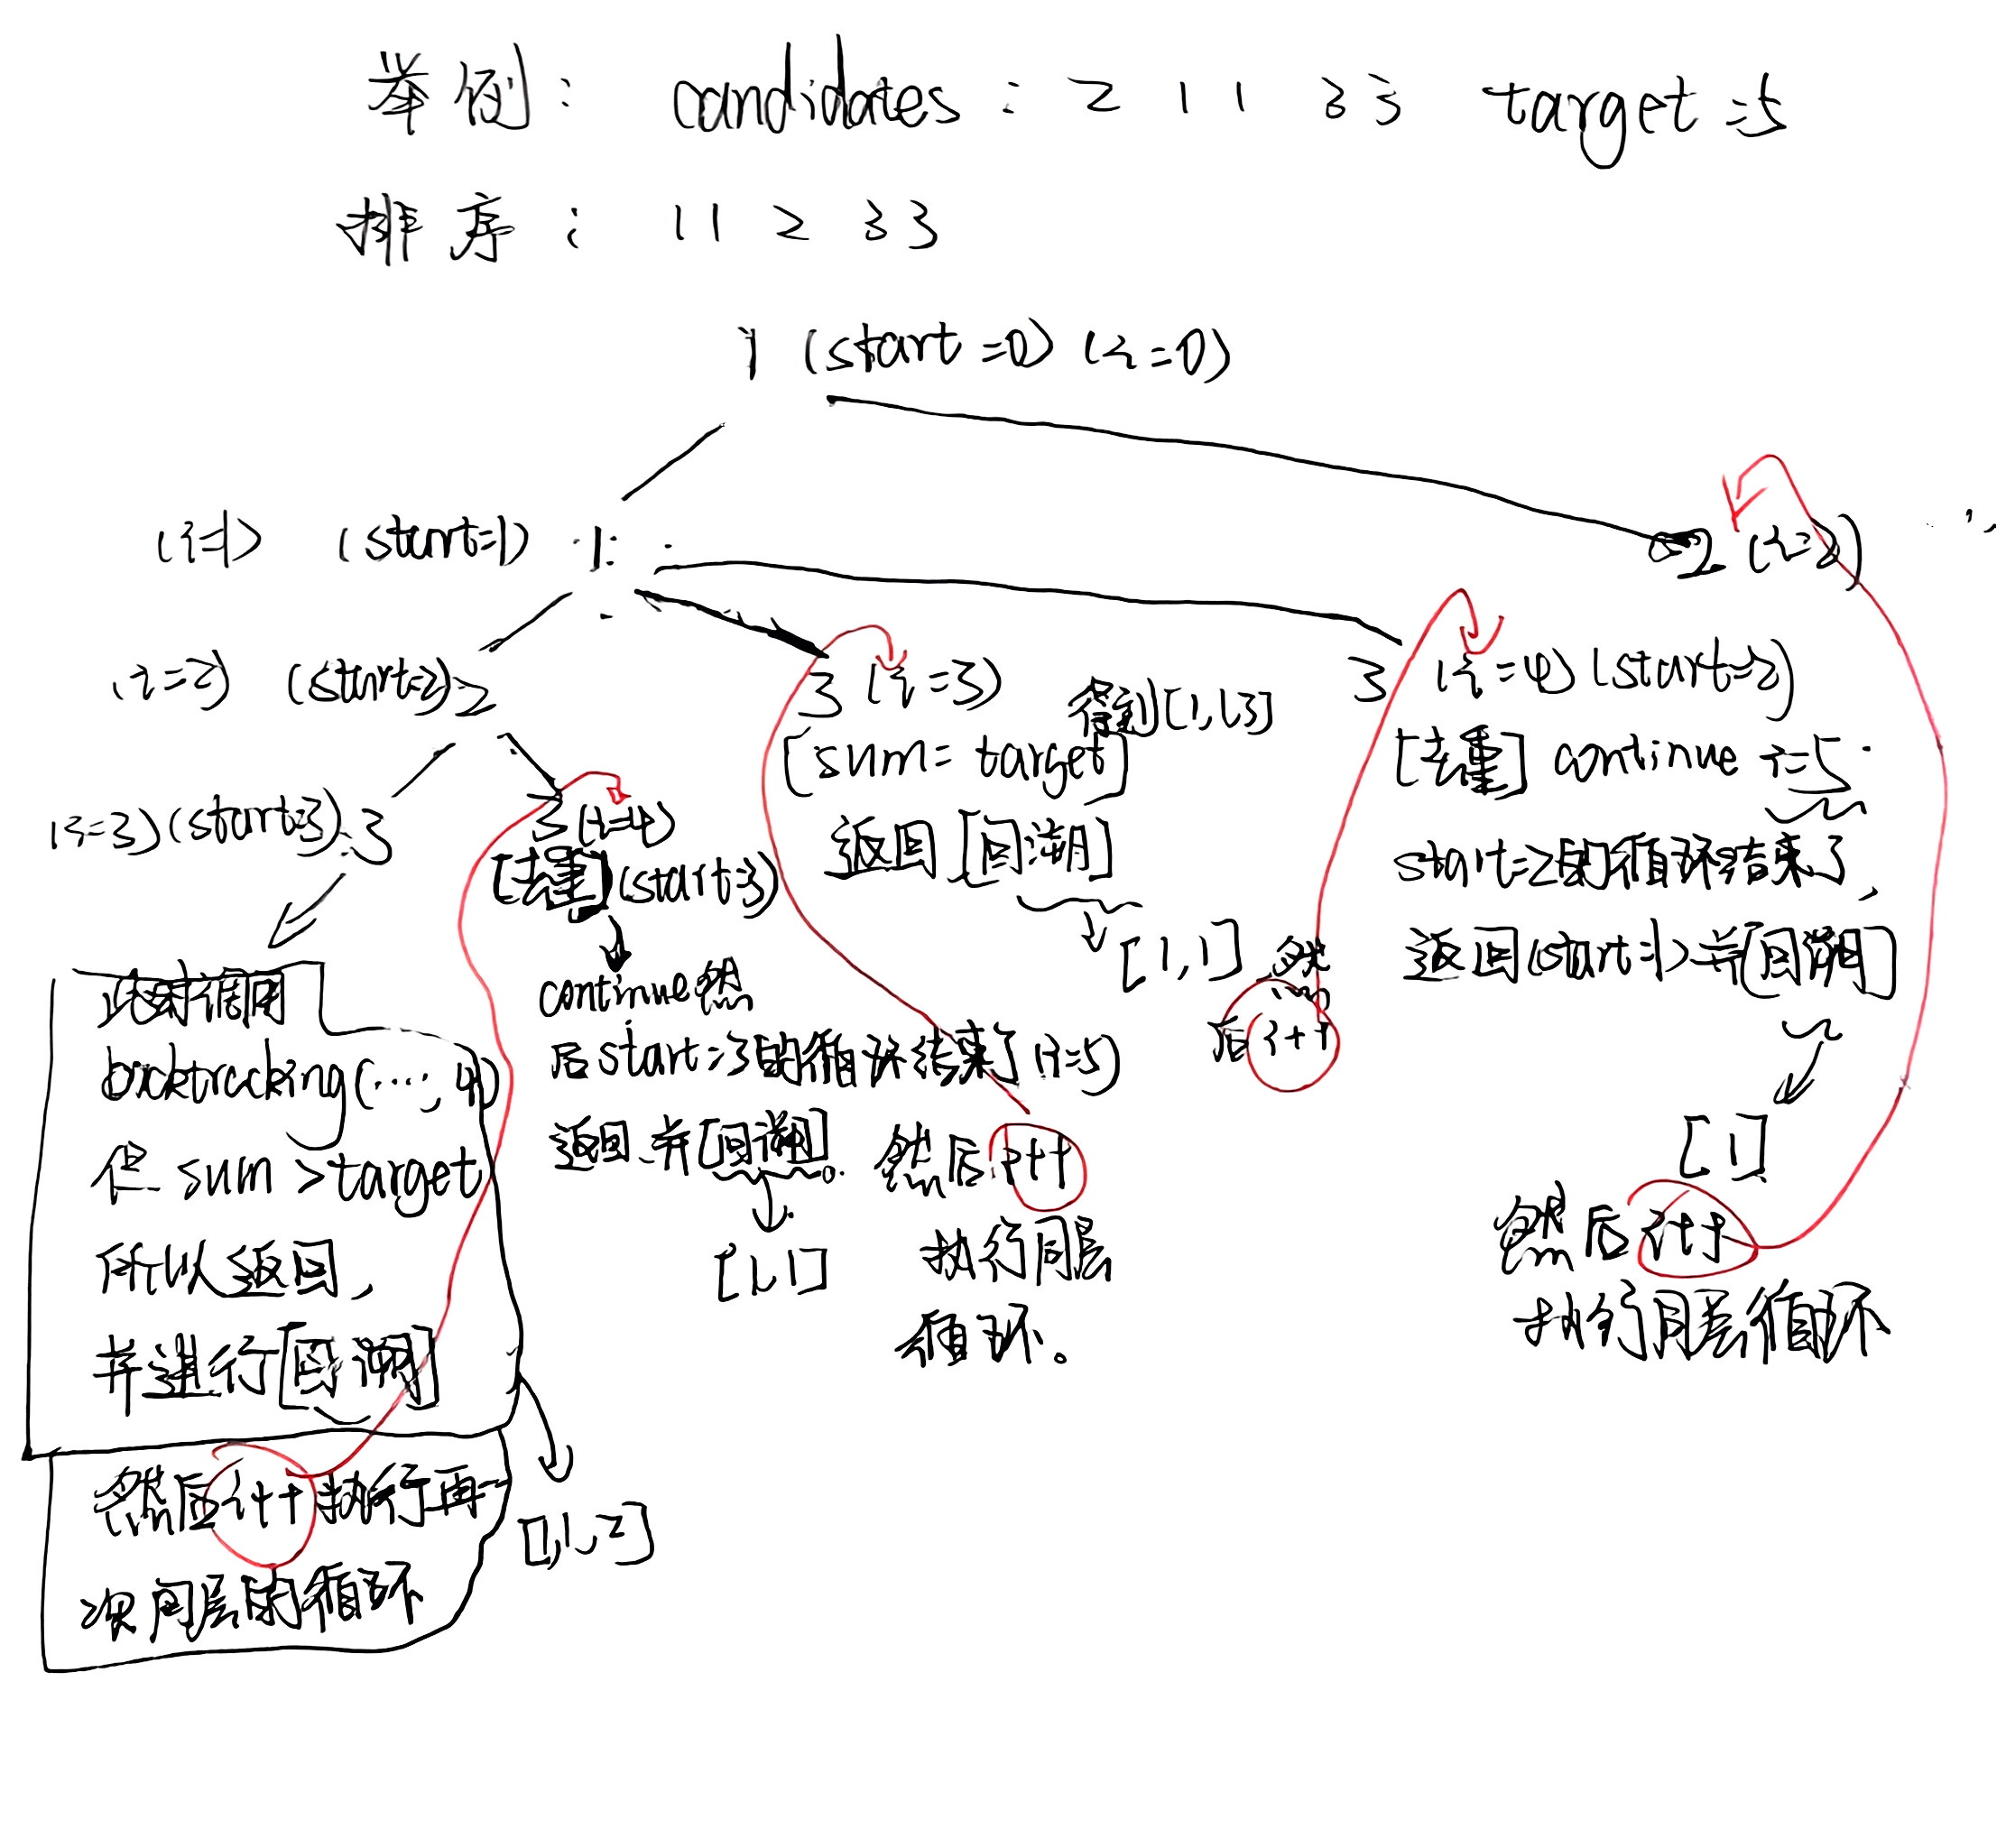 举例: candidates: 2 1 1 3 3 target=5
排序: 1 1 2 3 3
1 (start=0) (i=0)
(i=1) (start=1) 1
2 (i=2)
(i=2) (start=2) 2
3 (i=3)
得到[1,1,3]
[sum=target]
返回 [回溯]
[1,1] 然
后i++
3 (i=4) (start=2)
[去重] continue i=5
start=2的循环结束了,
返回(start=1)并[回溯]
[1]
然后i++
执行同层循环
(i=3)(start=3) 3
3(i=4)
[去重](start=3)
continue 然
后start=3的循环结束了(i=5)
返回并[回溯]。然后i++
[1,1]
执行同层
循环。
backtracking(...,4)
但sum>target
所以返回,
并进行[回溯]
然后i++执行再一
次同层的循环
[1,1,2]